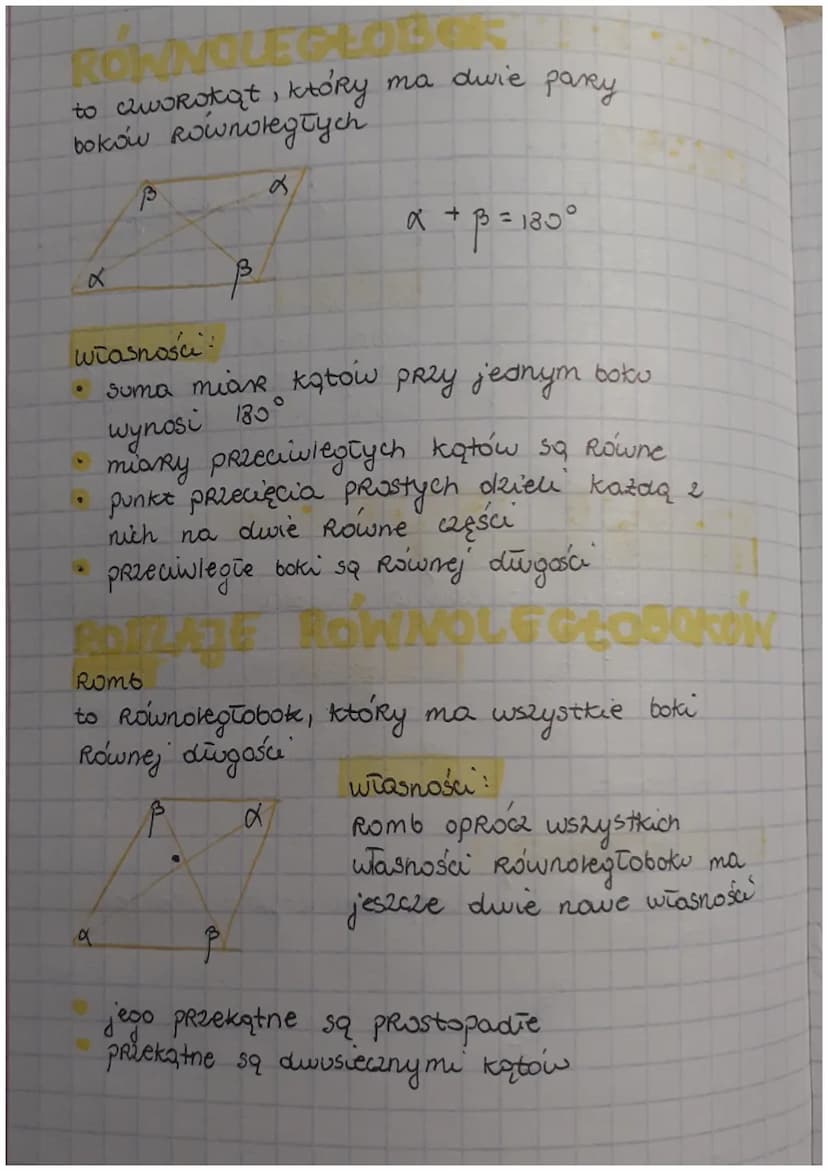 RÓWNOLEGŁOBOK
to czworokąt, który ma dwie pary
boków równoległych
β α
α β
α + β = 180°
własności:
• suma miar kątów przy jednym boku
wynosi 180°
• miary przeciwległych kątów są równe
• punkt przecięcia prostych dzieli każdą z
nich na dwie równe części
• przeciwległe boki są równej długości
RODZAJE RÓWNOLEGŁOBOKÓW
Romb
to równoległobok, który ma wszystkie boki
równej długości
własności:
β α
α β
Romb oprócz wszystkich
własności równoległoboku ma
jeszcze dwie nowe własności
• jego przekątne są prostopadłe
• przekątne są dwusiecznymi kątów